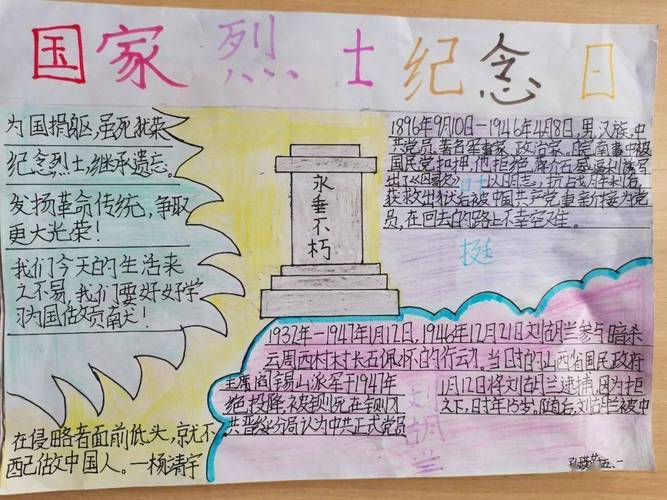 国家烈士纪念日
为国捐躯,虽死犹荣
纪念烈士,继承遗忘。
发扬革命传统,争取
更大光荣!
我们今天的生活来
之不易,我们要好好学
习为国做贡献!
在侵略者面前低头,就不
配做中国人。一杨靖宇
永垂不朽
1896年9月10日-1946年4月8日,男,汉族,中
共党员,著名军事家,政治家,皖南事中被
国民党扣押,他拒绝蒋介石威逼利诱写
出了《囚歌》以明志,抗占胜利后,
获救出狱后被中国共产党重新接为党
员,在回去的路上不幸空又生。
叶
挺
1932年-1947年1月12日,1946年12月21日刘胡兰参与暗杀
云周西村村长石佩怀的行动。当时的山西省国民政府
主席阎锡山派军于1947年 1月12日将刘胡兰逮捕,因为拒
绝投降,被铡死在铡刀 之下,日寸年15岁,随后,刘胡兰被中
共晋绥分局认为中共正式党员
刘胡兰
五、一